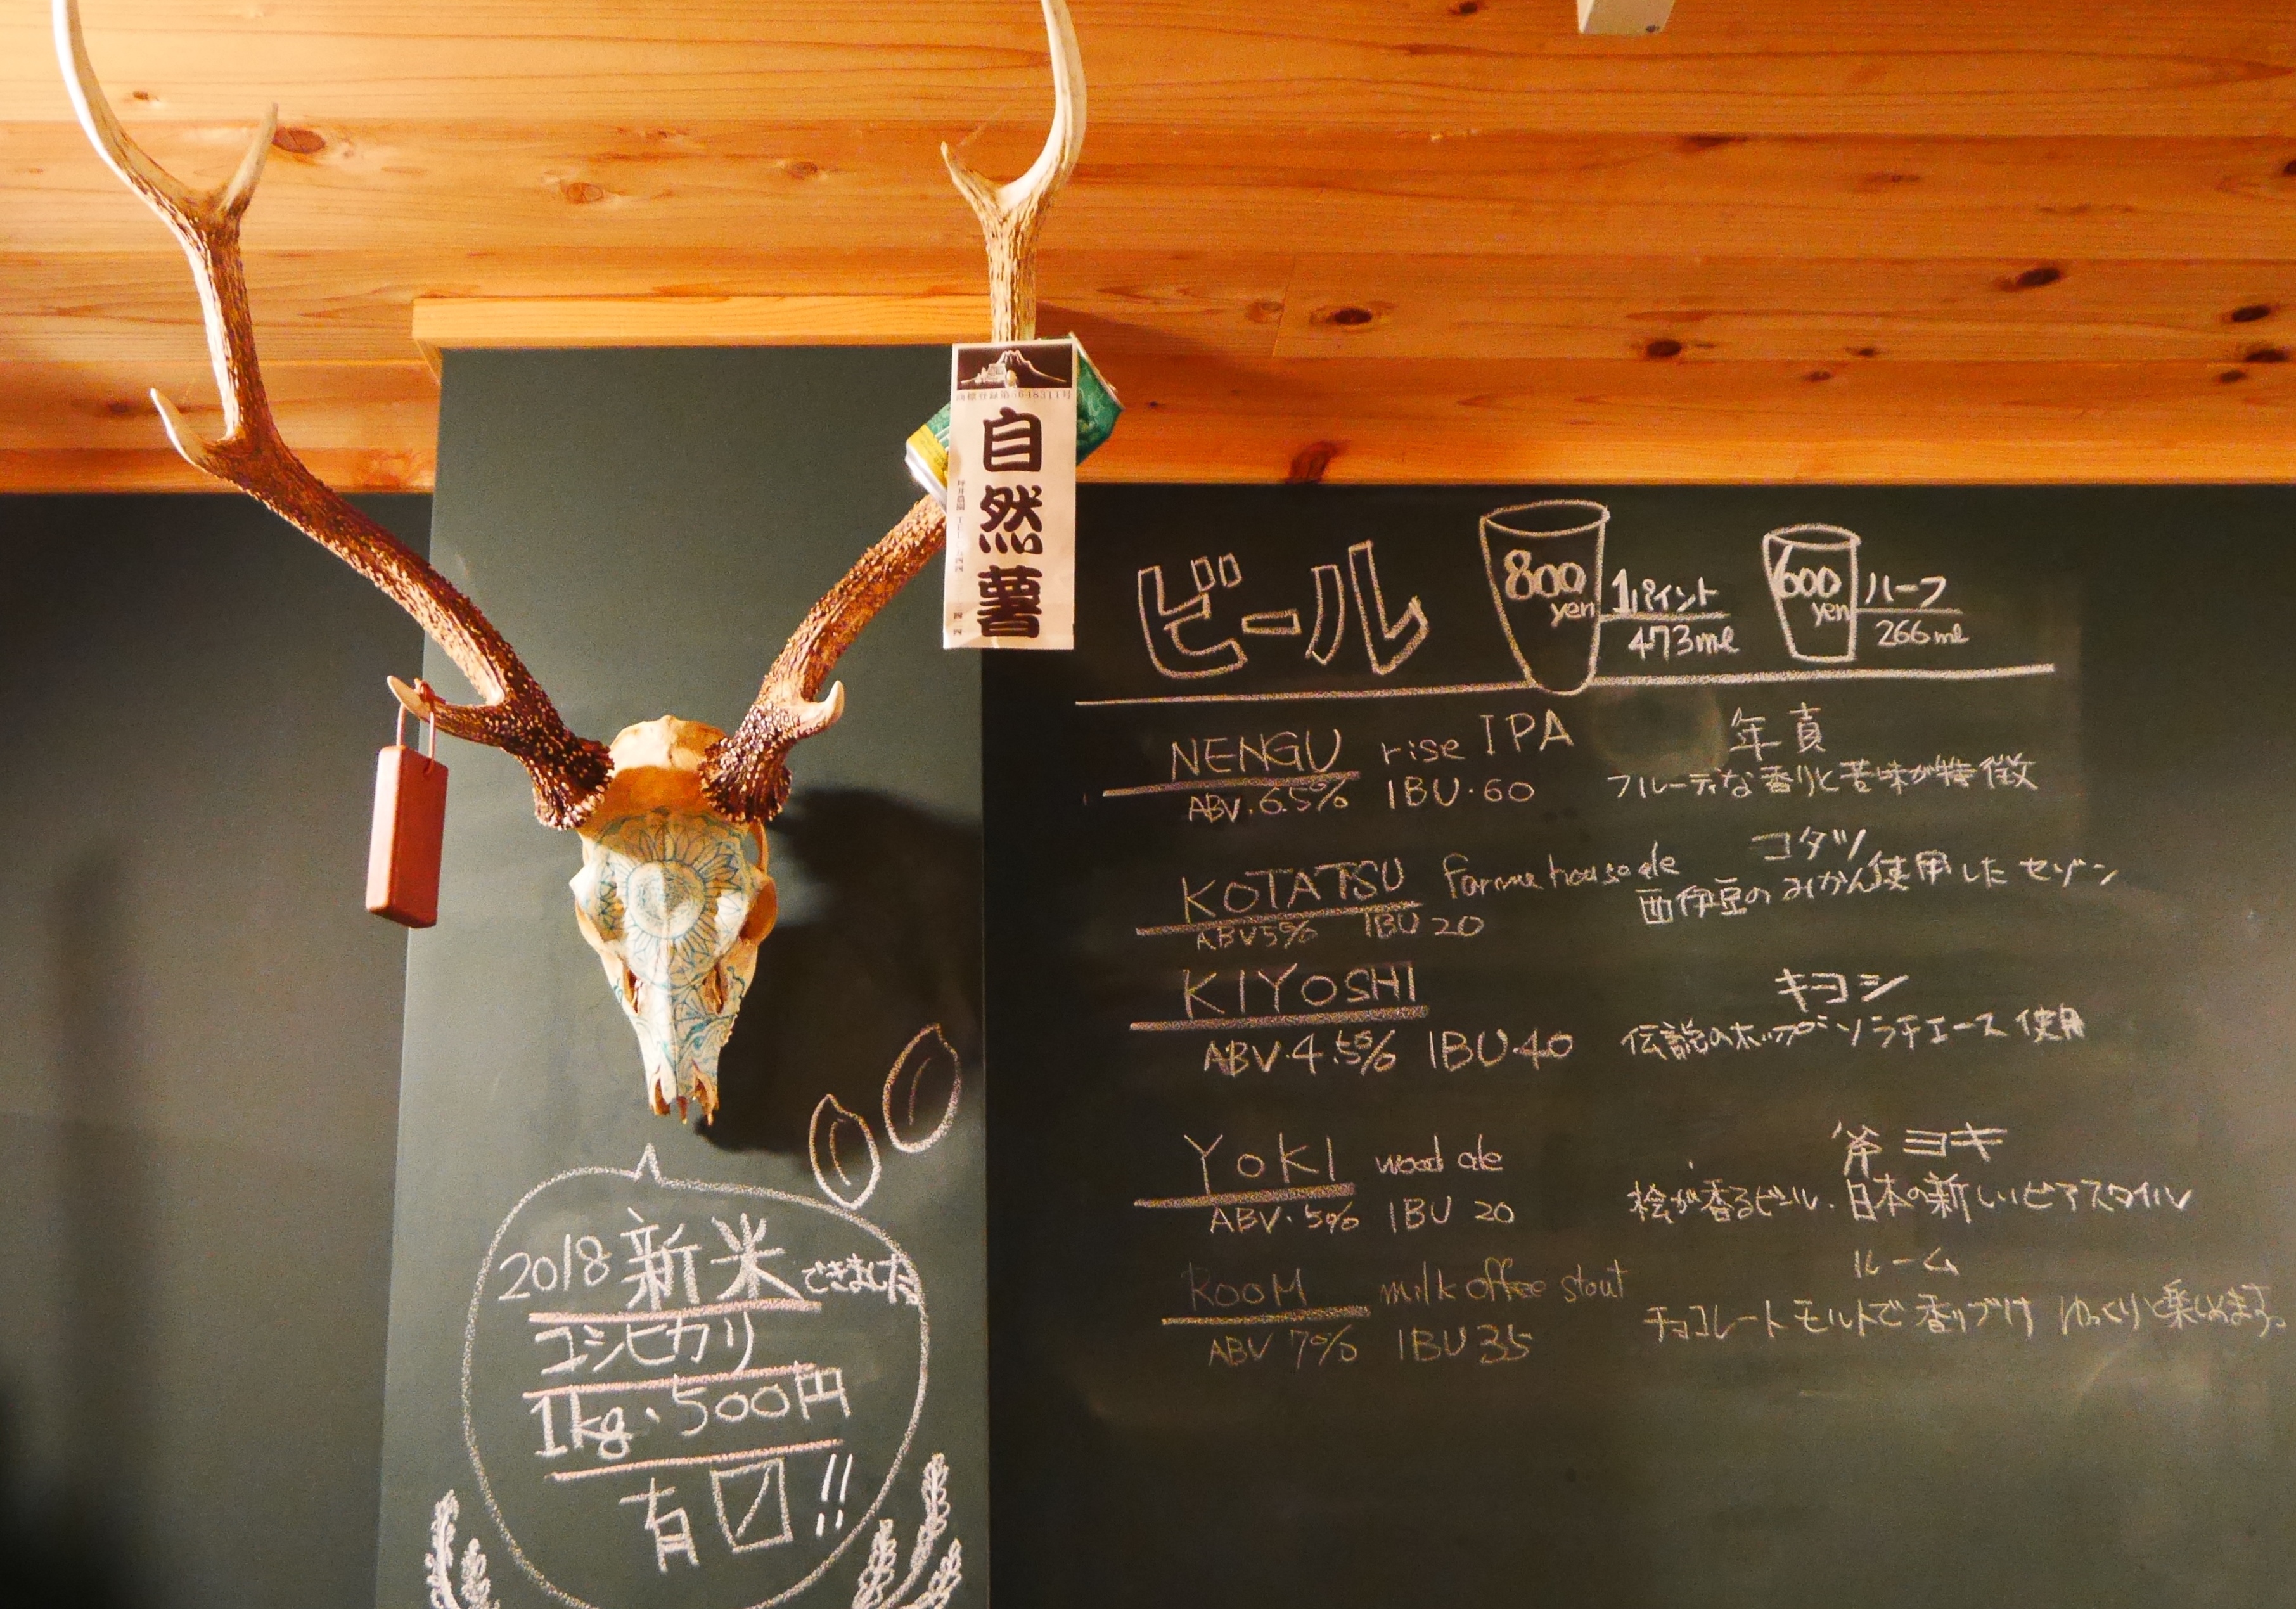 自然薯
ビール
800 yen
1パイント
473ml
600 yen
ハーフ
266ml
NENGU rise IPA 年貢
ABV.6.5% IBU.60 フルーティな香りと苦味が特徴
KOTATSU farme house ale コタツ
ABV 5% IBU 20 西伊豆のみかん使用したセゾン
KIYOSHI キヨシ
ABV.4.5% IBU.40 伝説のホップ ソラチエース使用
YOKI wood ale 斧 ヨキ
ABV.5% IBU 20 桧が香るビール.日本の新しいビアスタイル
ROOM milk offee stout ルーム
ABV 7% IBU 35 チョコレートモルトで香りづけ ゆっくりと楽しめます。
2018 新米できました
コシヒカリ
1kg.500円
有〼!!